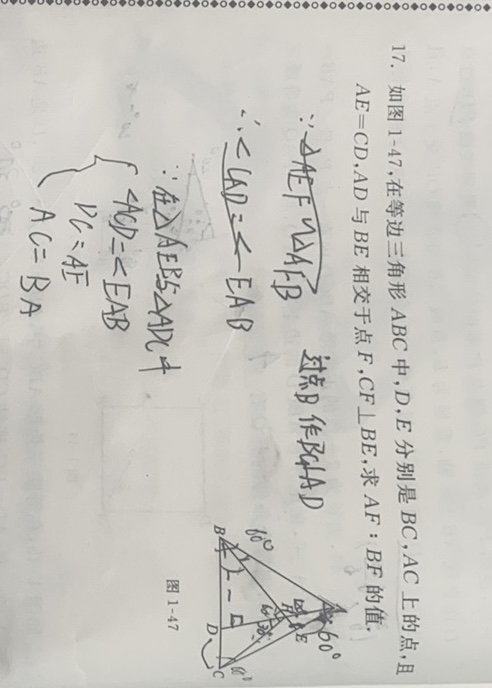 17. 如图1-47,在等边三角形ABC中,D,E分别是BC,AC上的点,且
AE=CD,AD与BE相交于点F,CF⊥BE,求AF:BF的值.
∵△AEF∽△AFB
过点B作BG⊥AD
∴<CAD=<EAB
∵在△AEB与△ADC中
<ACD=<EAB
DC=AE
AC=BA
A
60°
E
60°
B
D
C
图1-47